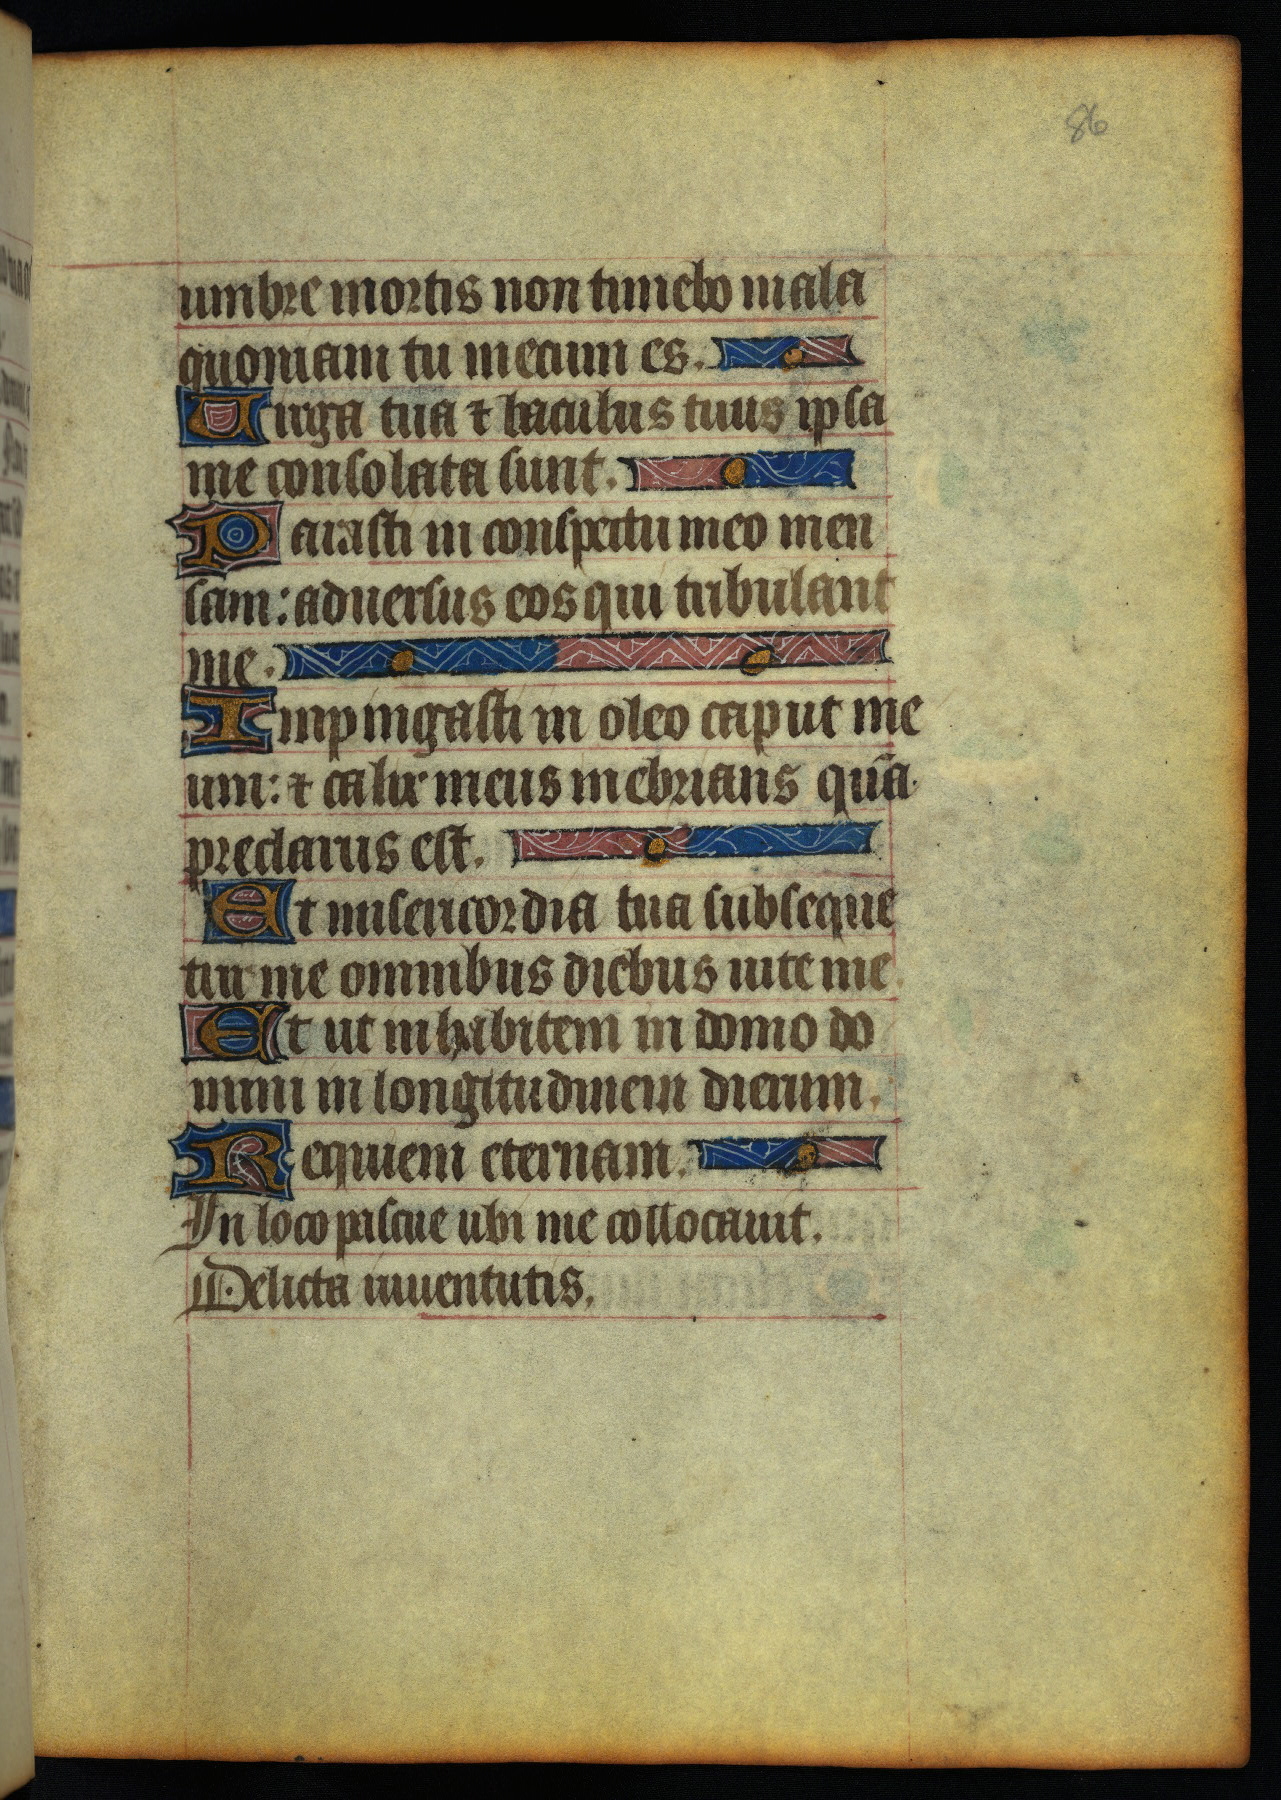 86
umbre mortis non timebo mala
quoniam tu mecum es.
Uirga tua ⁊ baculus tuus ipsa
me consolata sunt.
Parasti in conspectu meo men
sam: aduersus eos qui tribulant
me.
Impingasti in oleo caput me
um: ⁊ calix meus inebrians quā
preclarus est.
Et misericordia tua subseque
tur me omnibus diebus uite me
Et ut inhabitem in domo do
mini in longitudinem dierum.
Requiem eternam.
In loco pascue ubi me collocauit.
Delicta iuuentutis.